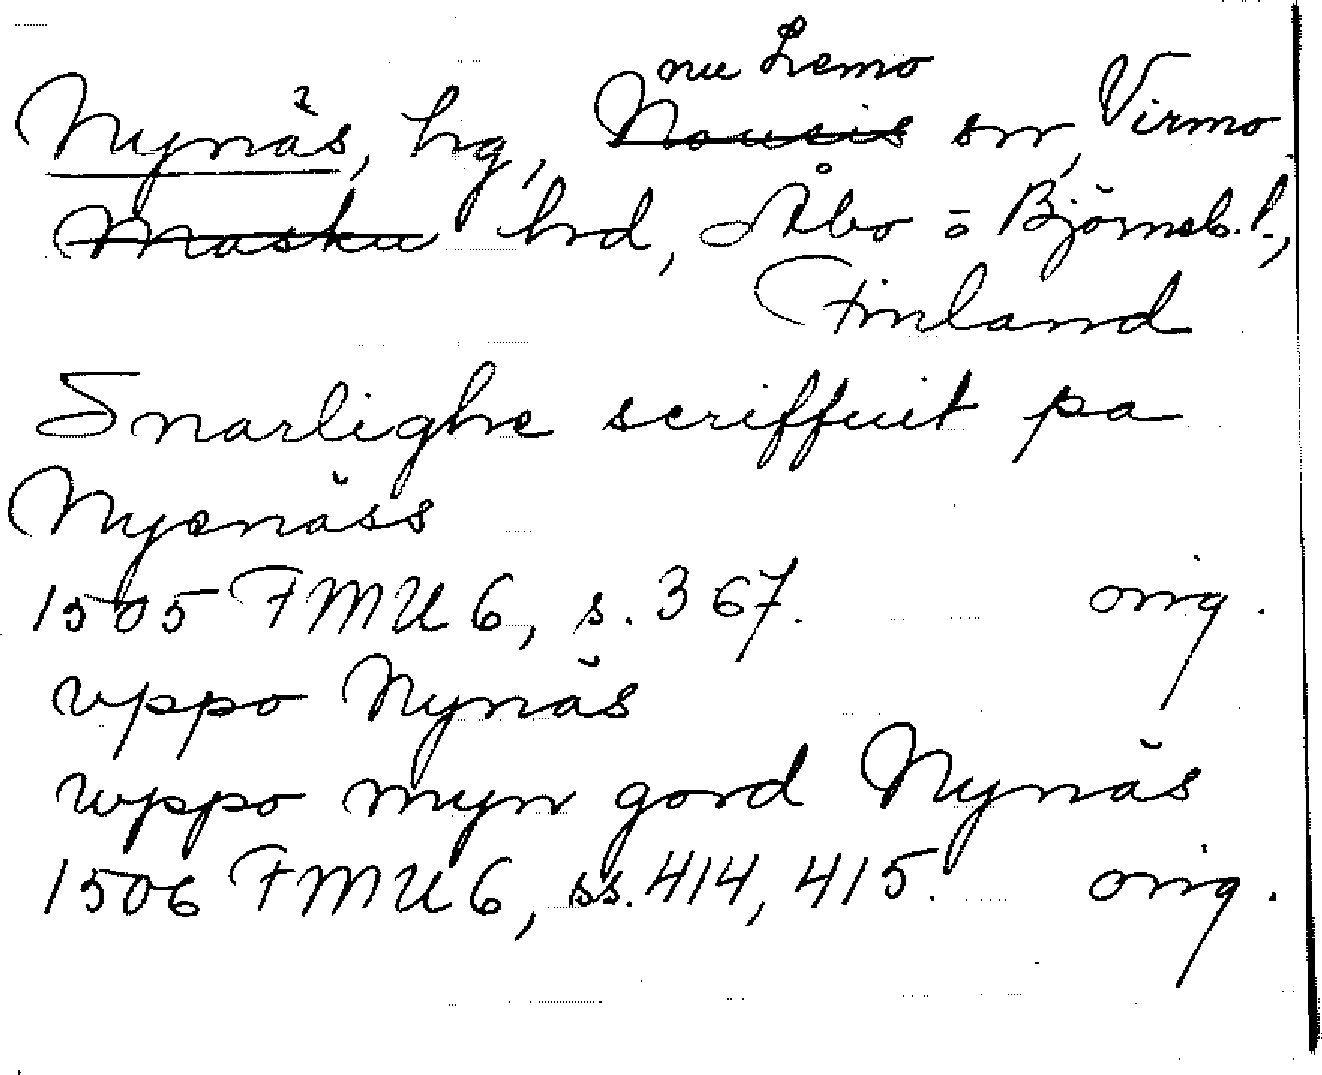 nu Lemo
Nynäs, hg, Nousis sn, Virmo
Masku hrd, Åbo o Björneb. l.,
Finland
Snarlighe scriffuit pa
Nyenäss
1505 FMU 6, s. 367. orig.
vppo Nynäs
wppo myn gord Nynäs
1506 FMU 6, ss. 414, 415. orig.